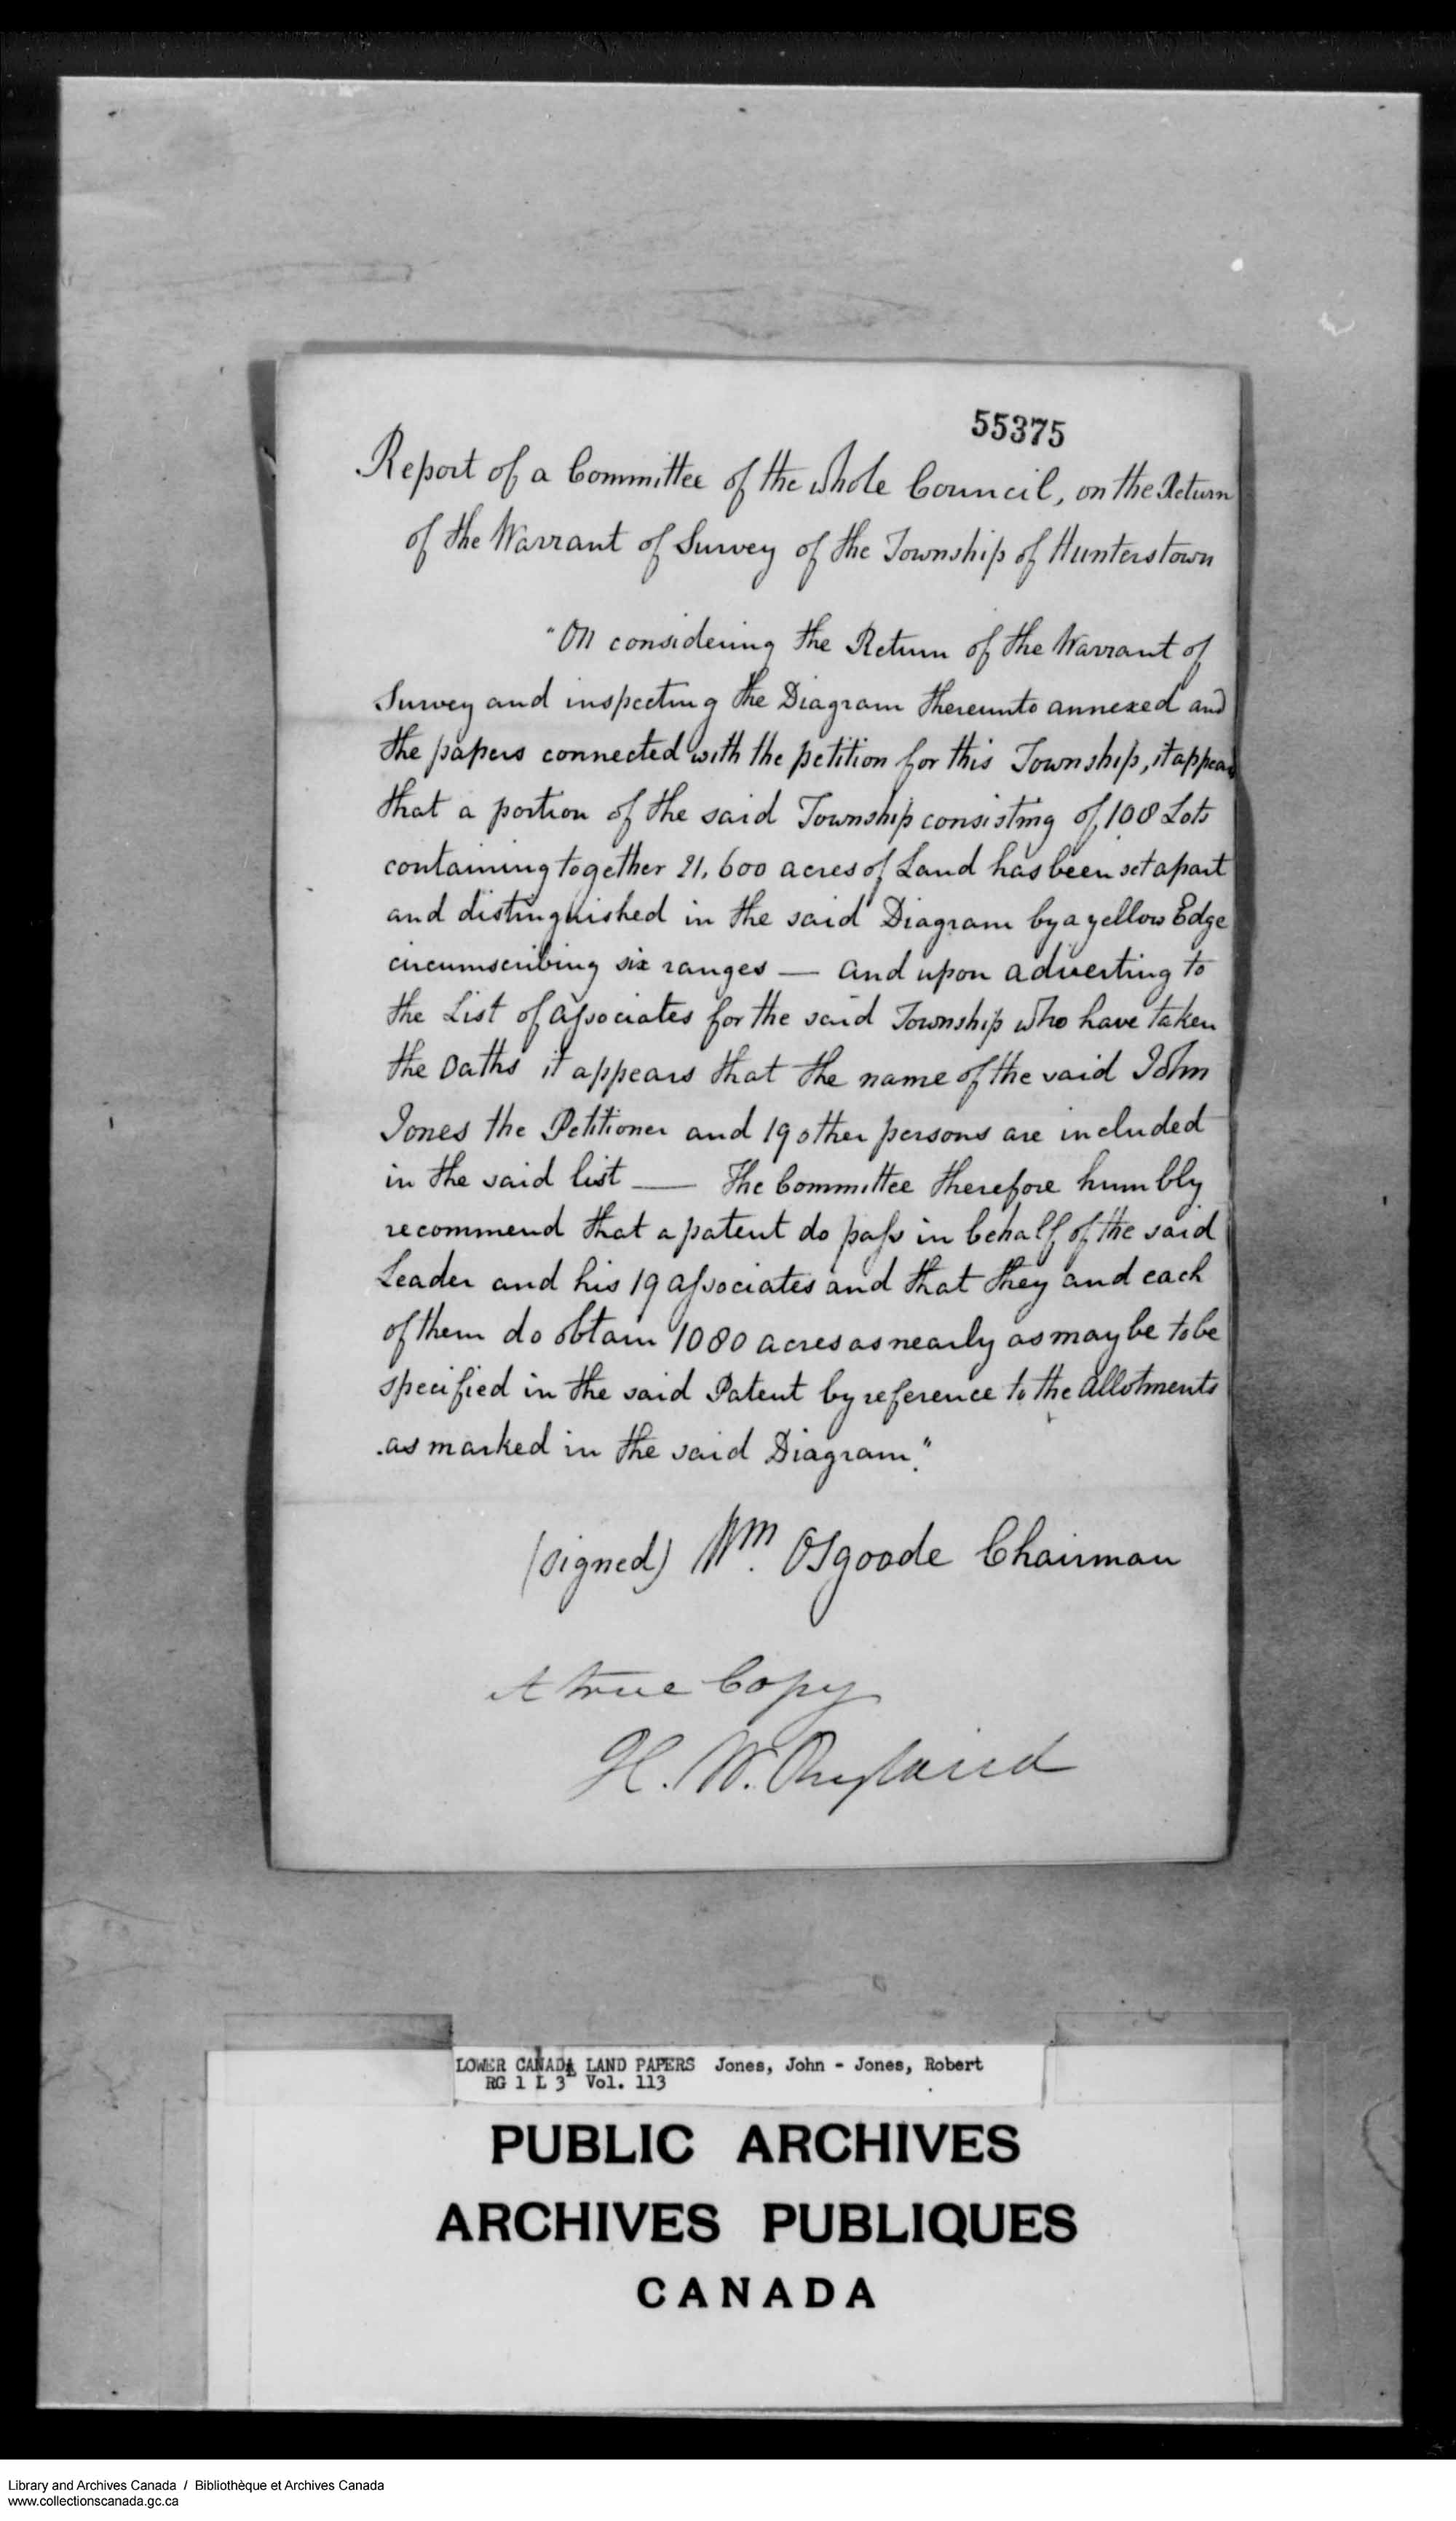 55375
Report of a Committee of the whole Council, on the Return
of the Warrant of Survey of the Township of Hunterstown
"On considering the Return of the Warrant of
Survey and inspecting the Diagram thereunto annexed and
the papers connected with the petition for this Township, it appears
that a portion of the said Township consisting of 108 Lots
containing together 21,600 acres of Land has been set apart
and distinguished in the said Diagram by a yellow Edge
circumscribing six ranges — and upon adverting to
the List of Associates for the said Township who have taken
the Oaths it appears that the name of the said John
Jones the Petitioner and 19 other persons are included
in the said list — The Committee therefore humbly
recommend that a patent do pass in behalf of the said
Leader and his 19 associates and that they and each
of them do obtain 1080 acres as nearly as may be to be
specified in the said Patent by reference to the allotments
as marked in the said Diagram."
(signed) Wm. Osgoode Chairman
A true Copy
H. W. Ryland
LOWER CANADA LAND PAPERS Jones, John - Jones, Robert
RG 1 L 3 Vol. 113
PUBLIC ARCHIVES
ARCHIVES PUBLIQUES
CANADA
Library and Archives Canada / Bibliothèque et Archives Canada
www.collectionscanada.gc.ca